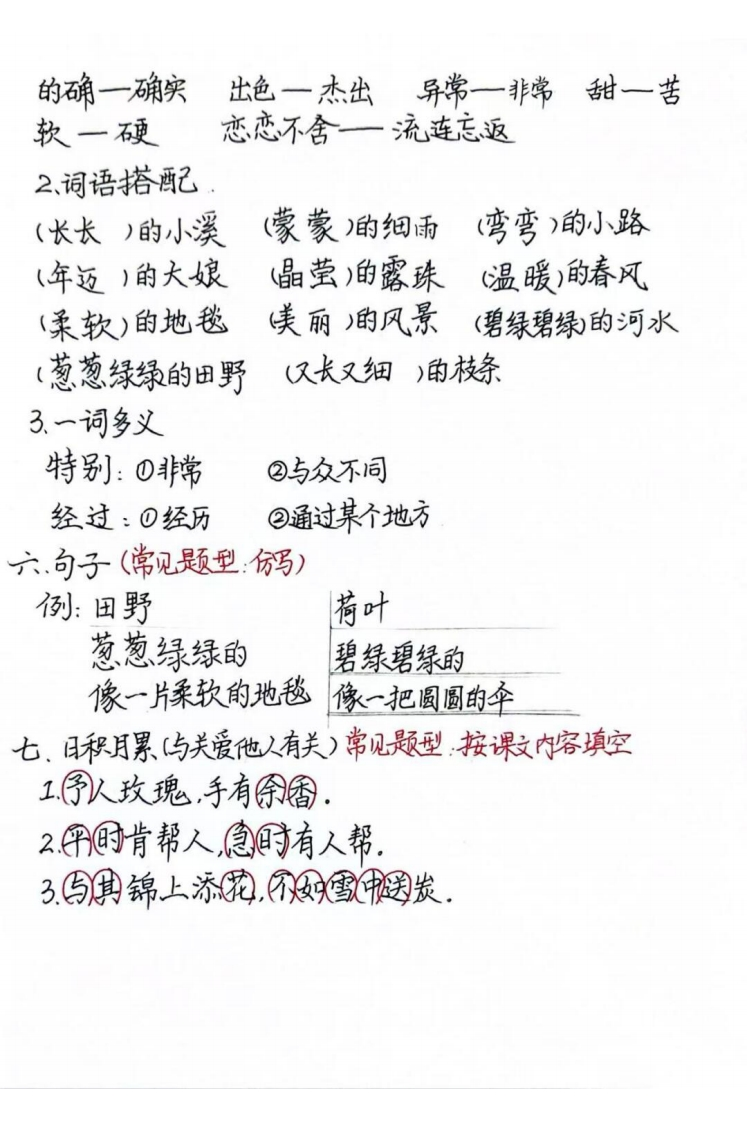 的确—确实 出色—杰出 异常—非常 甜—苦
软—硬 恋恋不舍—流连忘返
2.词语搭配.
(长长 )的小溪 (蒙蒙)的细雨 (弯弯)的小路
(年迈 )的大娘 (晶莹)的露珠 (温暖)的春风
(柔软)的地毯 (美丽 )的风景 (碧绿碧绿)的河水
(葱葱绿绿的田野 (又长又细 )的枝条
3.一词多义
特别:①非常 ②与众不同
经过:①经历 ②通过某个地方
六.句子(常见题型:仿写)
例:田野 荷叶
葱葱绿绿的 碧绿碧绿的
像一片柔软的地毯 像一把圆圆的伞
七.日积月累(与关爱他人有关)常见题型:按课文内容填空
1.予人玫瑰,手有余香.
2.平时肯帮人,急时有人帮.
3.与其锦上添花,不如雪中送炭.